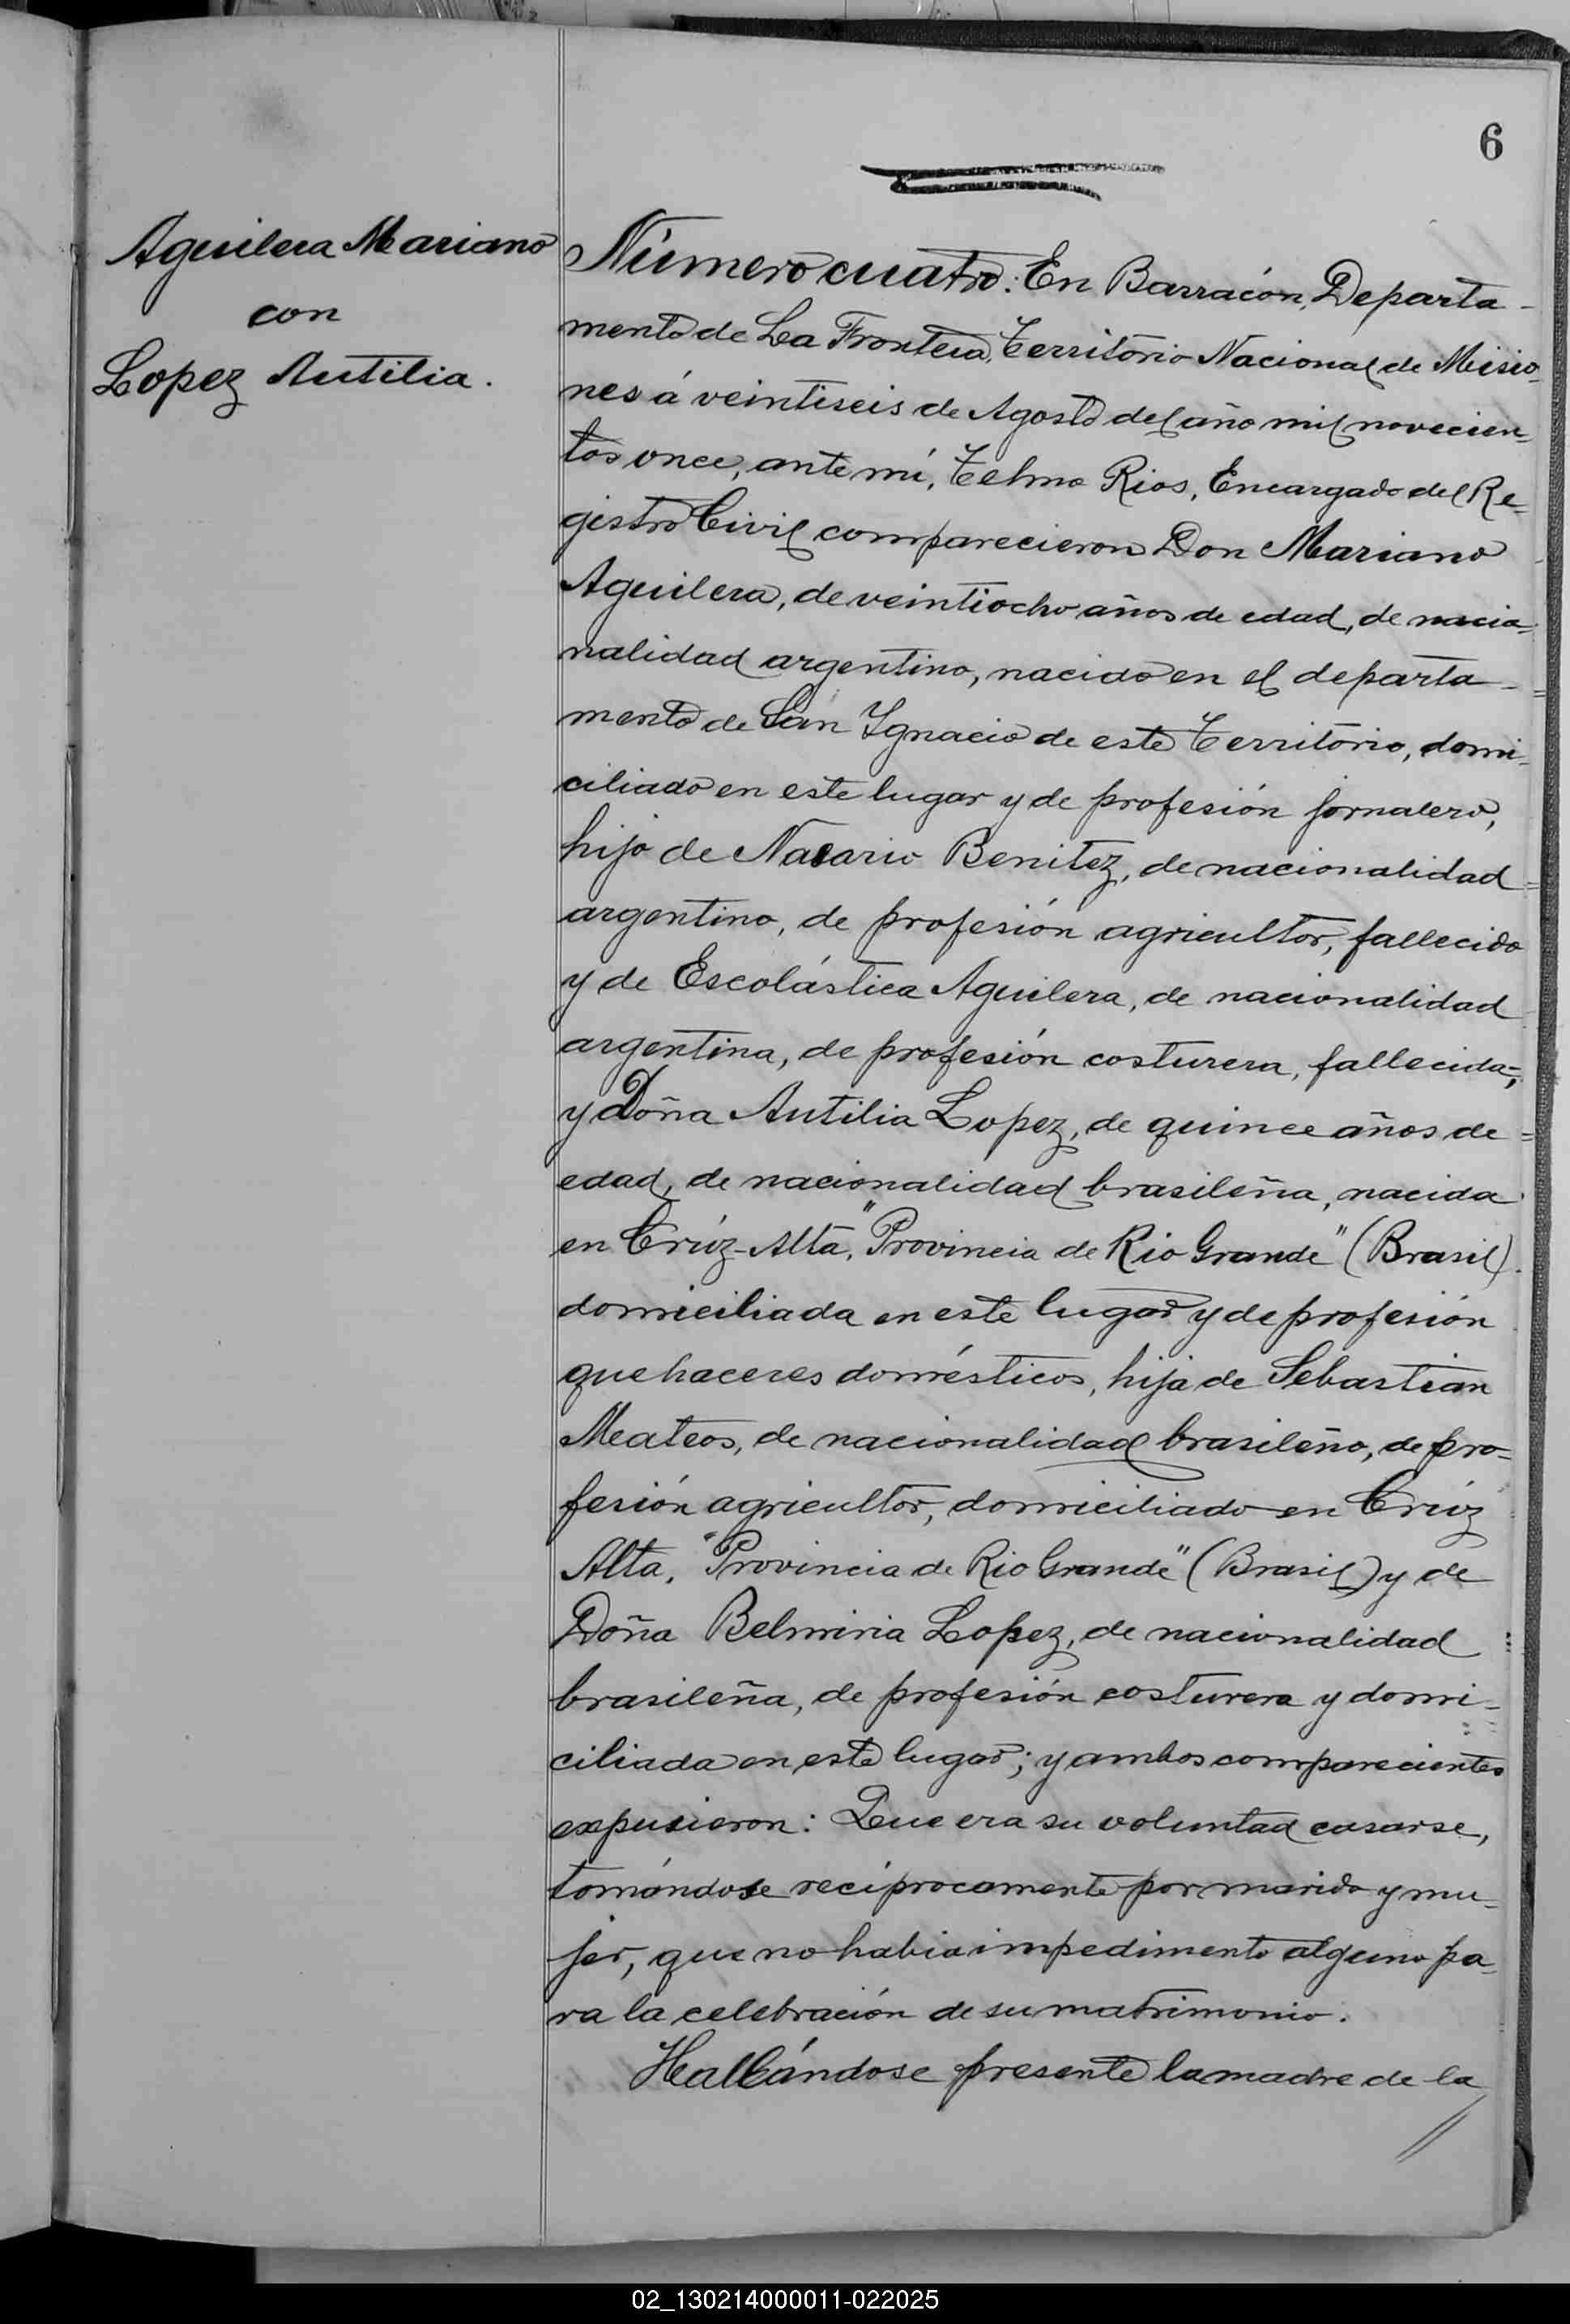 6
Aguilera Mariano
con
Lopez Autilia.
Número cuatro: En Barracón, Departa-
mento de La Frontera, Territorio Nacional de Misio-
nes á veintiseis de Agosto del año mil novecien-
tos once, ante mí, Telmo Rios, Encargado del Re-
gistro Civil comparecieron Don Mariano
Aguilera, de veintiocho años de edad, de nacio-
nalidad argentino, nacido en el departa-
mento de San Ignacio de este Territorio, domi-
ciliado en este lugar y de profesión jornalero,
hijo de Nasario Benitez, de nacionalidad
argentino, de profesión agricultor, fallecido
y de Escolástica Aguilera, de nacionalidad
argentina, de profesión costurera, fallecida;
y Doña Autilia Lopez, de quince años de
edad, de nacionalidad brasileña, nacida
en Crúz-Alta, "Provincia de Rio Grande" (Brasil)
domiciliada en este lugar y de profesión
quehaceres domésticos, hija de Sebastian
Mateos, de nacionalidad brasileño, de pro-
fesión agricultor, domiciliado en Crúz
Alta, "Provincia de Rio Grande" (Brasil) y de
Doña Belmiria Lopez, de nacionalidad
brasileña, de profesión costurera y domi-
ciliada en este lugar; y ambos comparecientes
expusieron: Que era su voluntad casarse,
tomándose recíprocamente por marido y mu-
jer, que no habia impedimento alguno pa-
ra la celebración de su matrimonio.
Hallándose presente la madre de la
//
02_130214000011-022025